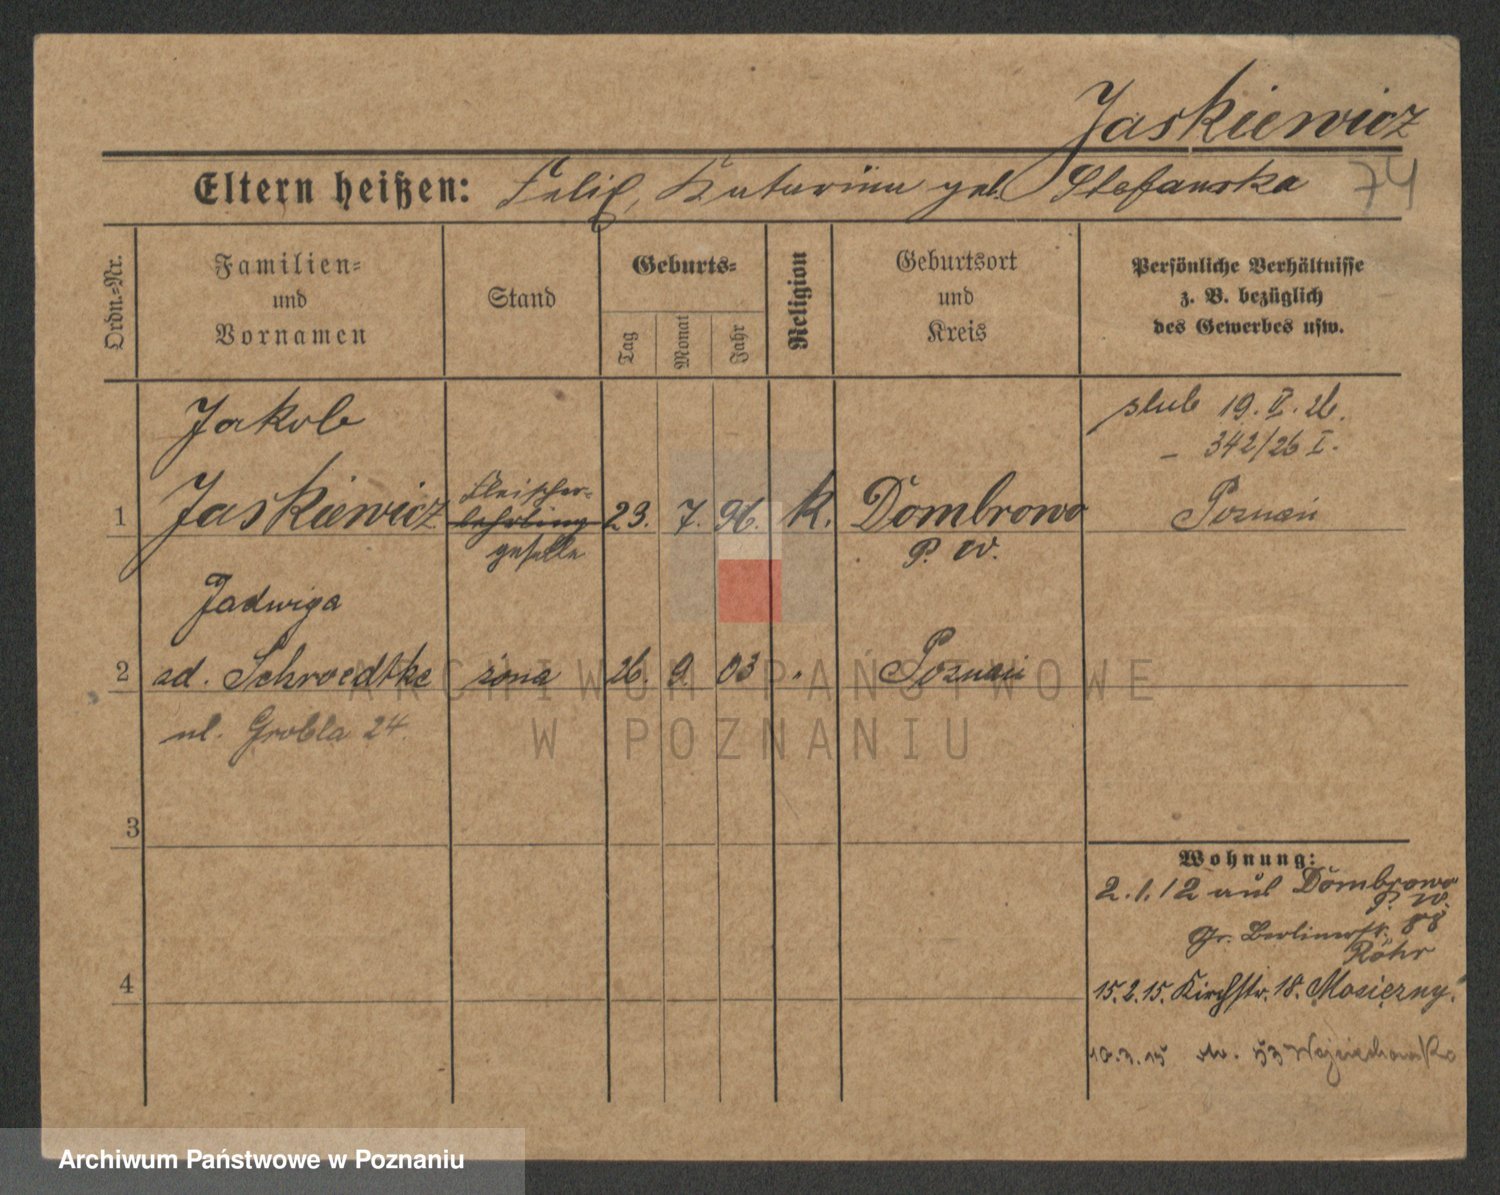 Jaskiewicz
Eltern heißen: Felix, Katarina geb. Stefanska 74
Ordn.-Nr.
Familien-
und
Vornamen
Stand
Geburts-
Tag
Monat
Jahr
Religion
Geburtsort
und
Kreis
Persönliche Verhältnisse
z. B. bezüglich
des Gewerbes usw.
Jakob
slub 19. II. 26.
- 342/26 I.
1 Jaskiewicz Fleischer-
lehrling 23. 7. 96. K. Dombrowo Poznań
geselle P. W.
Jadwiga
2 zd. Schroedtke żona 26. 9. 03 Poznań
ul. Grobla 24.
3
Wohnung:
2.1.12 aus Dombrowo
P. W.
Gr. Berlinerstr. 88
Röhr
4
15.2.15. Kirchstr. 18. Mosiężny
53 Wojciechowska
ARCHIWUM PAŃSTWOWE
W POZNANIU
Archiwum Państwowe w Poznaniu